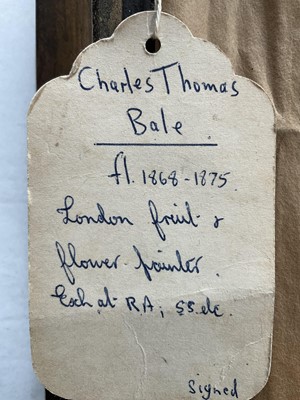 Charles Thomas
Bale
fl. 1868-1875.
London fruit &
flower painter.
Exh at RA; SS. etc.
Signed